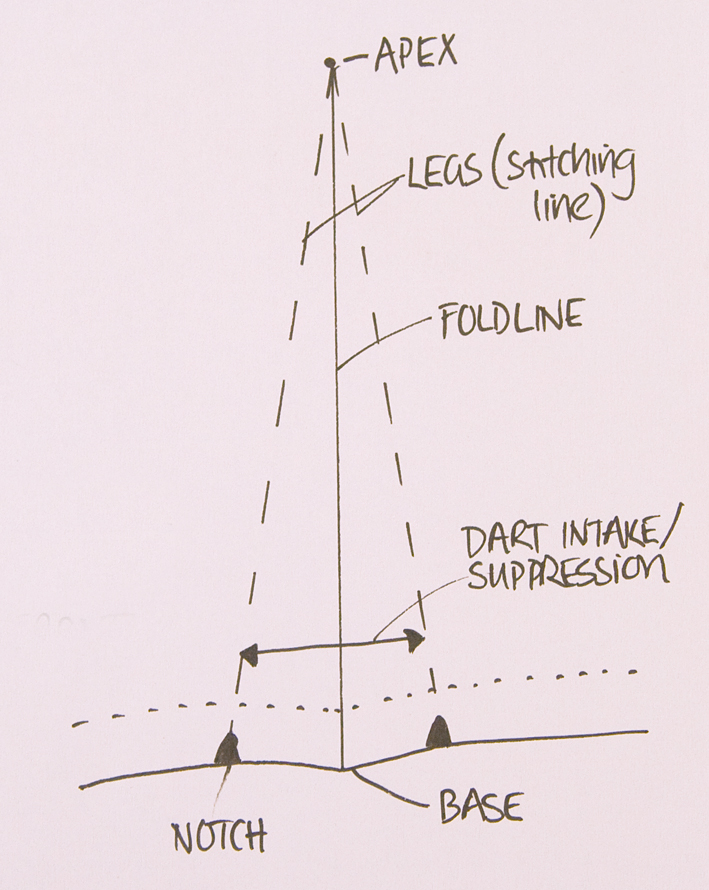 APEX
LEGS (stitching
line)
FOLDLINE
DART INTAKE/
SUPPRESSION
BASE
NOTCH